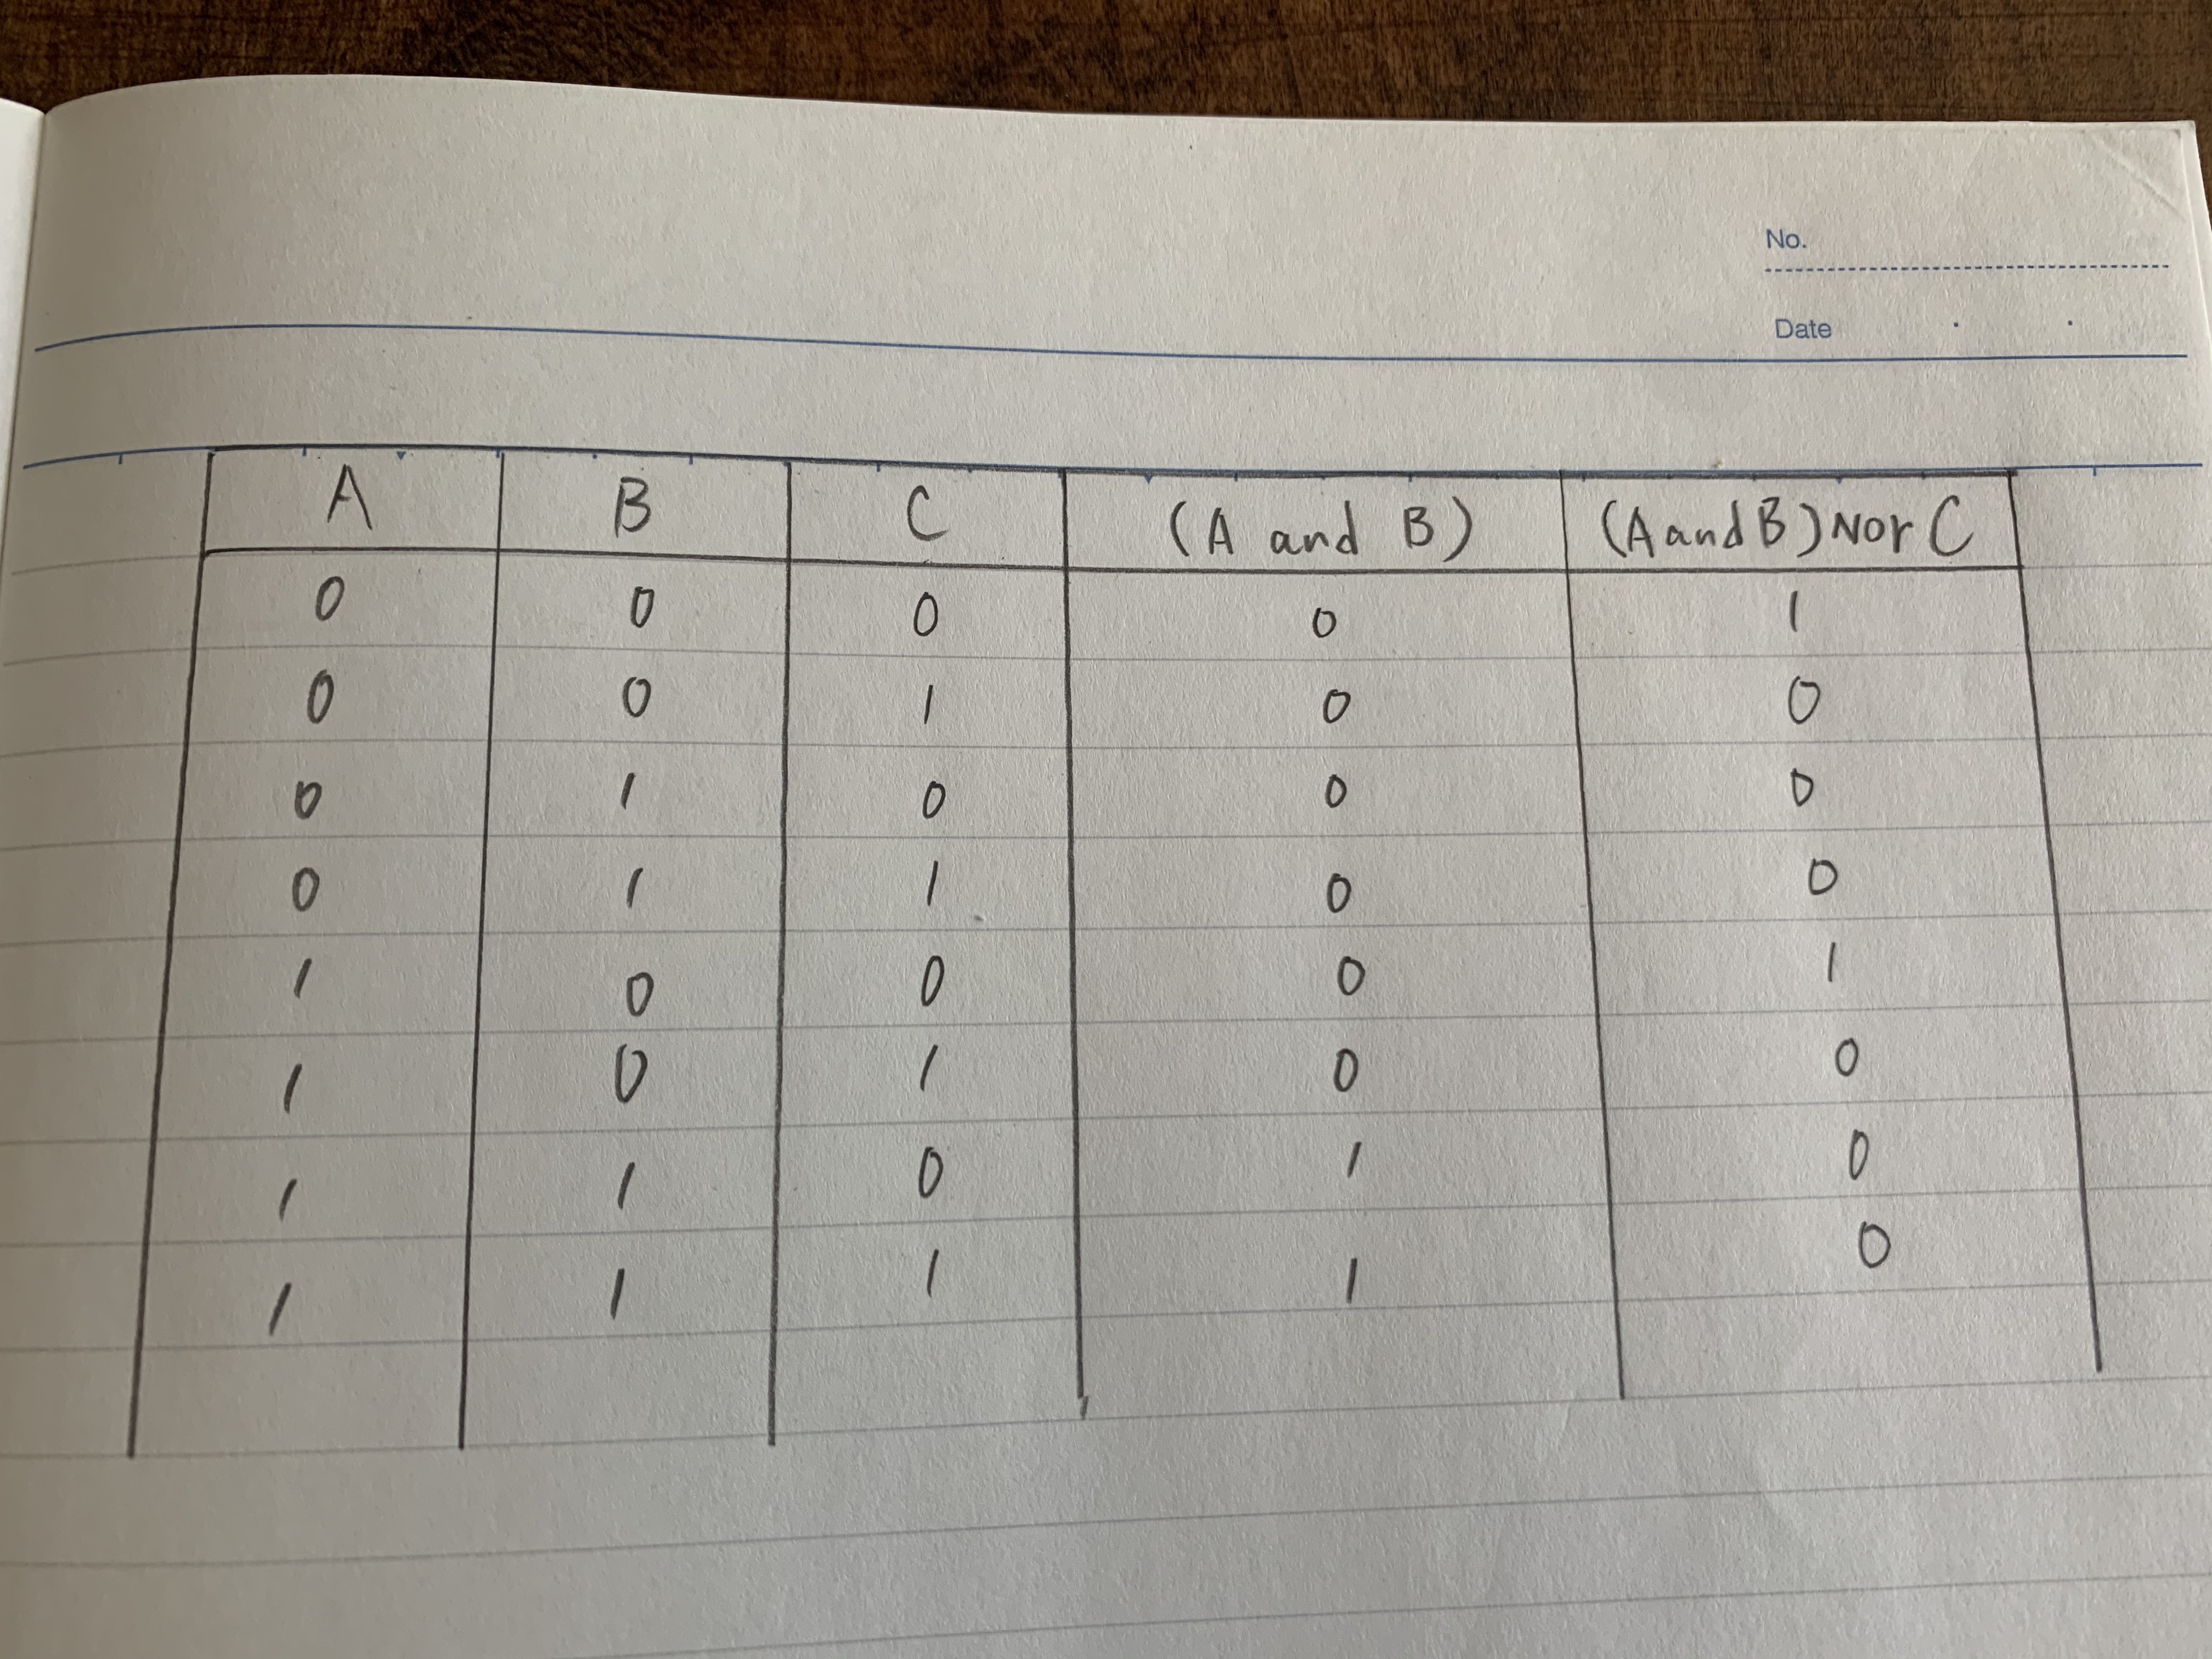 No.
Date
A B C (A and B) (A and B) Nor C
0 0 0 0 1
0 0 1 0 0
0 1 0 0 0
0 1 1 0 0
1 0 0 0 1
1 0 1 0 0
1 1 0 1 0
1 1 1 1 0